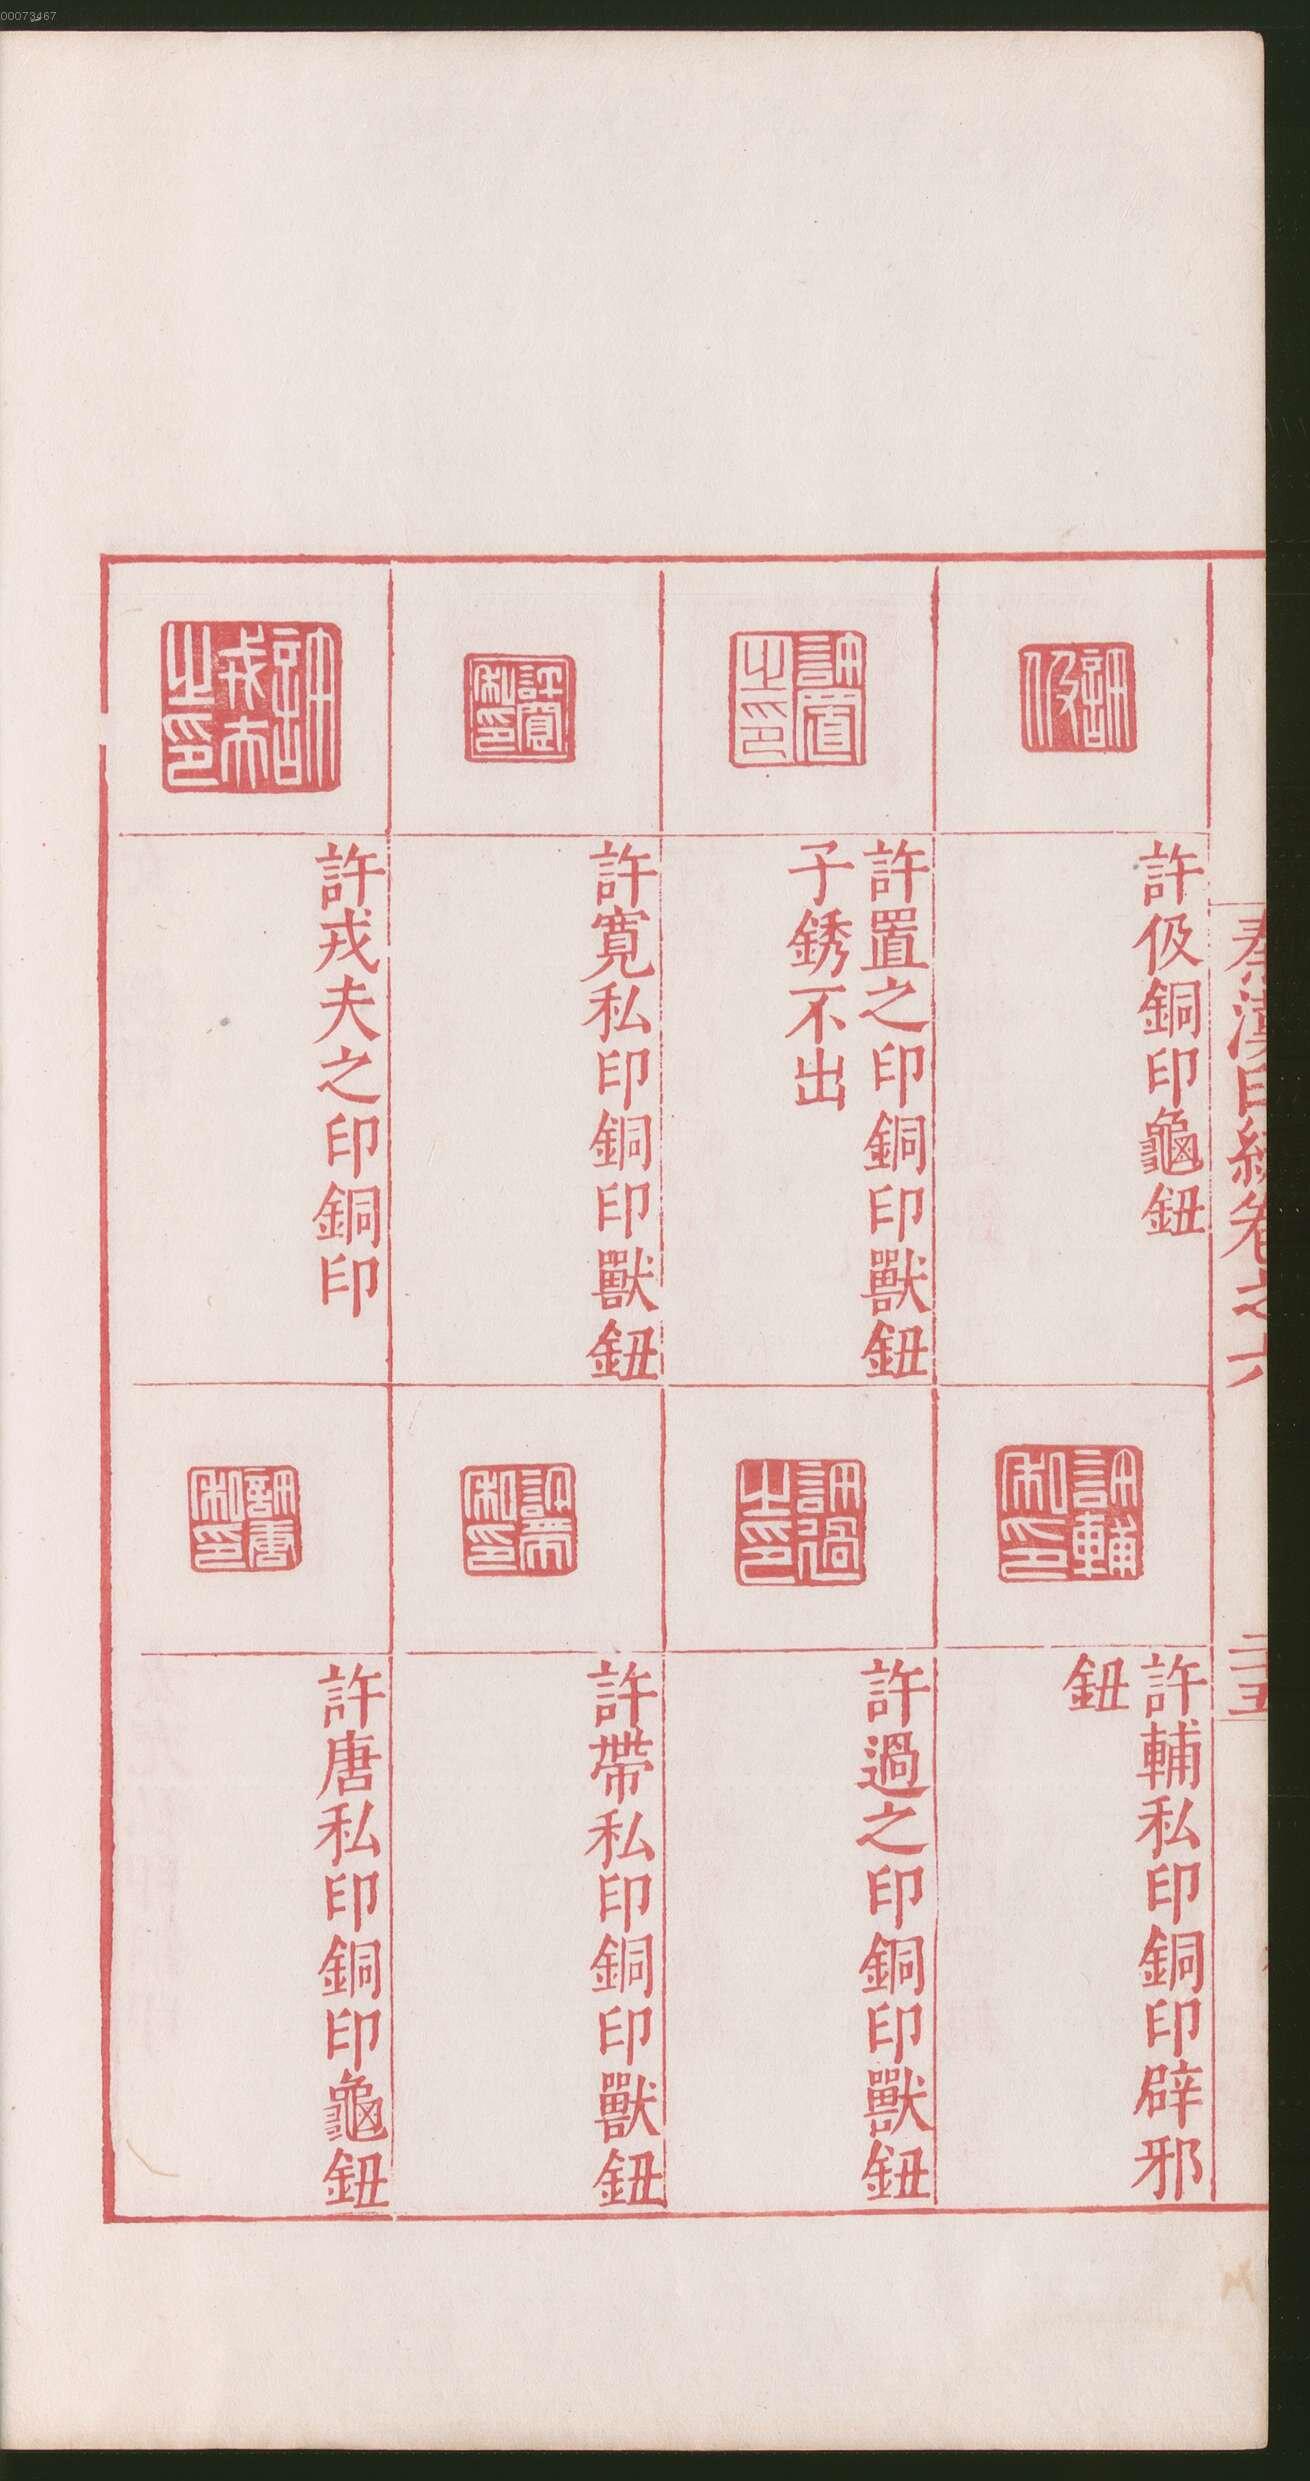 00073467
秦漢印統卷之六
二五
許伋
許伋銅印龜鈕
許置之印
許置之印銅印獸鈕
子銹不出
許寬私印
許寬私印銅印獸鈕
許戎夫之印
許戎夫之印銅印
許輔私印
許輔私印銅印辟邪
鈕
許過之印
許過之印銅印獸鈕
許帶私印
許帶私印銅印獸鈕
許唐私印
許唐私印銅印龜鈕